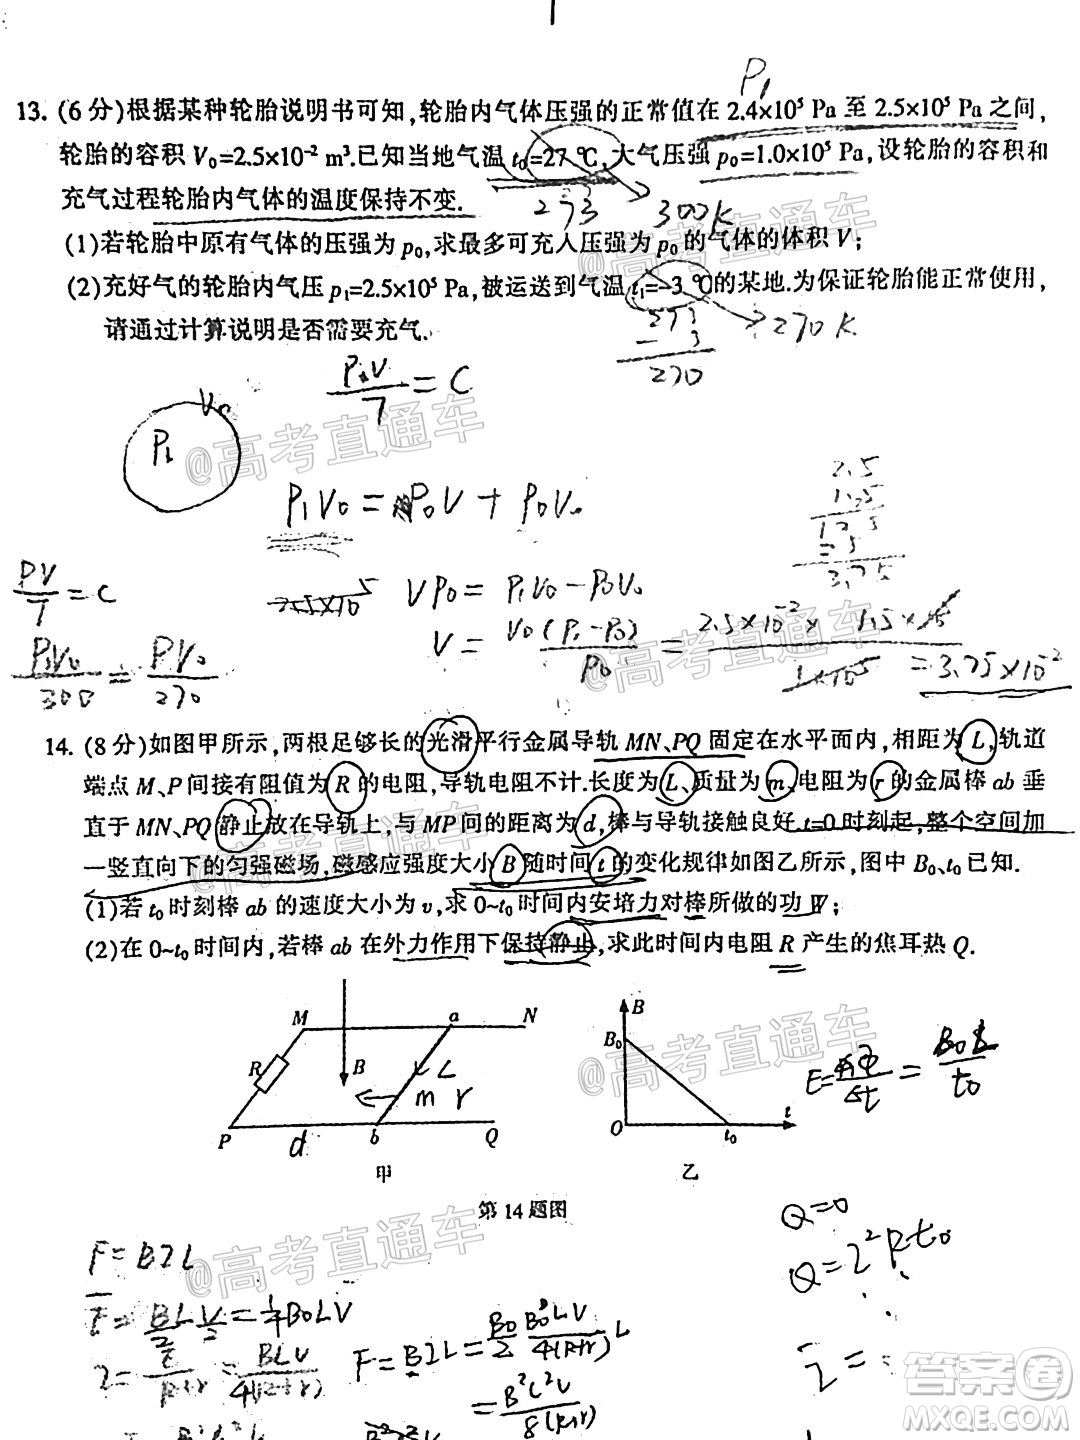 P₁
13. (6分)根据某种轮胎说明书可知,轮胎内气体压强的正常值在 2.4×10⁵ Pa 至 2.5×10⁵ Pa 之间,
轮胎的容积 V₀=2.5×10⁻² m³.已知当地气温 t₀=27 ℃,大气压强 p₀=1.0×10⁵ Pa,设轮胎的容积和
充气过程轮胎内气体的温度保持不变.
273
300K
(1)若轮胎中原有气体的压强为 p₀,求最多可充入压强为 p₀ 的气体的体积 V;
(2)充好气的轮胎内气压 p₁=2.5×10⁵ Pa,被运送到气温 t₁=-3 ℃的某地.为保证轮胎能正常使用,
请通过计算说明是否需要充气.
273
- 3
270
270 K
V₀
P₁
= C
P₁V₀ = P₀V + P₀V₀
2.5
1.5
125
25
3.75
PV/T = C
2.5×10⁵
VP₀ = P₁V₀ - P₀V₀
V = V₀(P₁-P₀)/P₀ = 2.5×10⁻²× 1.5×10⁵/1×10⁵ = 3.75×10⁻²
P₁V₀/300 = PV₀/270
14. (8分)如图甲所示,两根足够长的光滑平行金属导轨 MN、PQ 固定在水平面内,相距为 L,轨道
端点 M、P 间接有阻值为 R 的电阻,导轨电阻不计.长度为 L、质量为 m、电阻为 r 的金属棒 ab 垂
直于 MN、PQ 静止放在导轨上,与 MP 间的距离为 d,棒与导轨接触良好.t=0 时刻起,整个空间加
一竖直向下的匀强磁场,磁感应强度大小 B 随时间 t 的变化规律如图乙所示,图中 B₀、t₀ 已知.
(1)若 t₀ 时刻棒 ab 的速度大小为 v,求 0~t₀ 时间内安培力对棒所做的功 W;
(2)在 0~t₀ 时间内,若棒 ab 在外力作用下保持静止,求此时间内电阻 R 产生的焦耳热 Q.
M
a
N
R
B
L
m r
P
d
b
Q
甲
B
B₀
O
t₀
t
乙
第14题图
Q=0
Q=I²Rt₀
F=BIL
@高考直通车
@高考直通车
@高考直通车
@高考直通车
@高考直通车
@高考直通车
答案圈
MXQE.COM